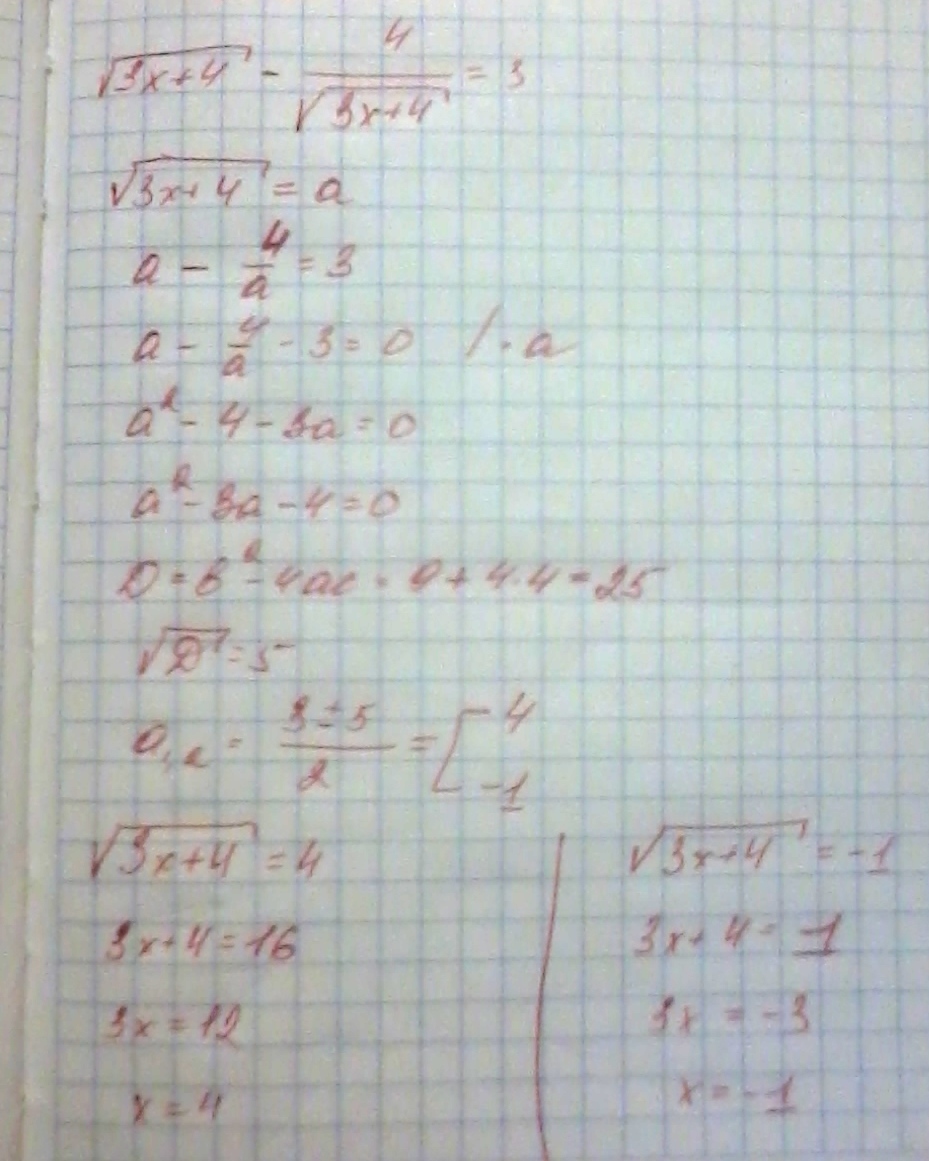 √(3x+4) - 4/√(3x+4) = 3
√(3x+4) = a
a - 4/a = 3
a - 4/a - 3 = 0 /·a
a² - 4 - 3a = 0
a² - 3a - 4 = 0
D = b² - 4ac = 9 + 4·4 = 25
√D = 5
a₁,₂ = (3±5)/2 = [4
-1
√(3x+4) = 4
3x+4 = 16
3x = 12
x = 4
√(3x+4) = -1
3x+4 = 1
3x = -3
x = -1